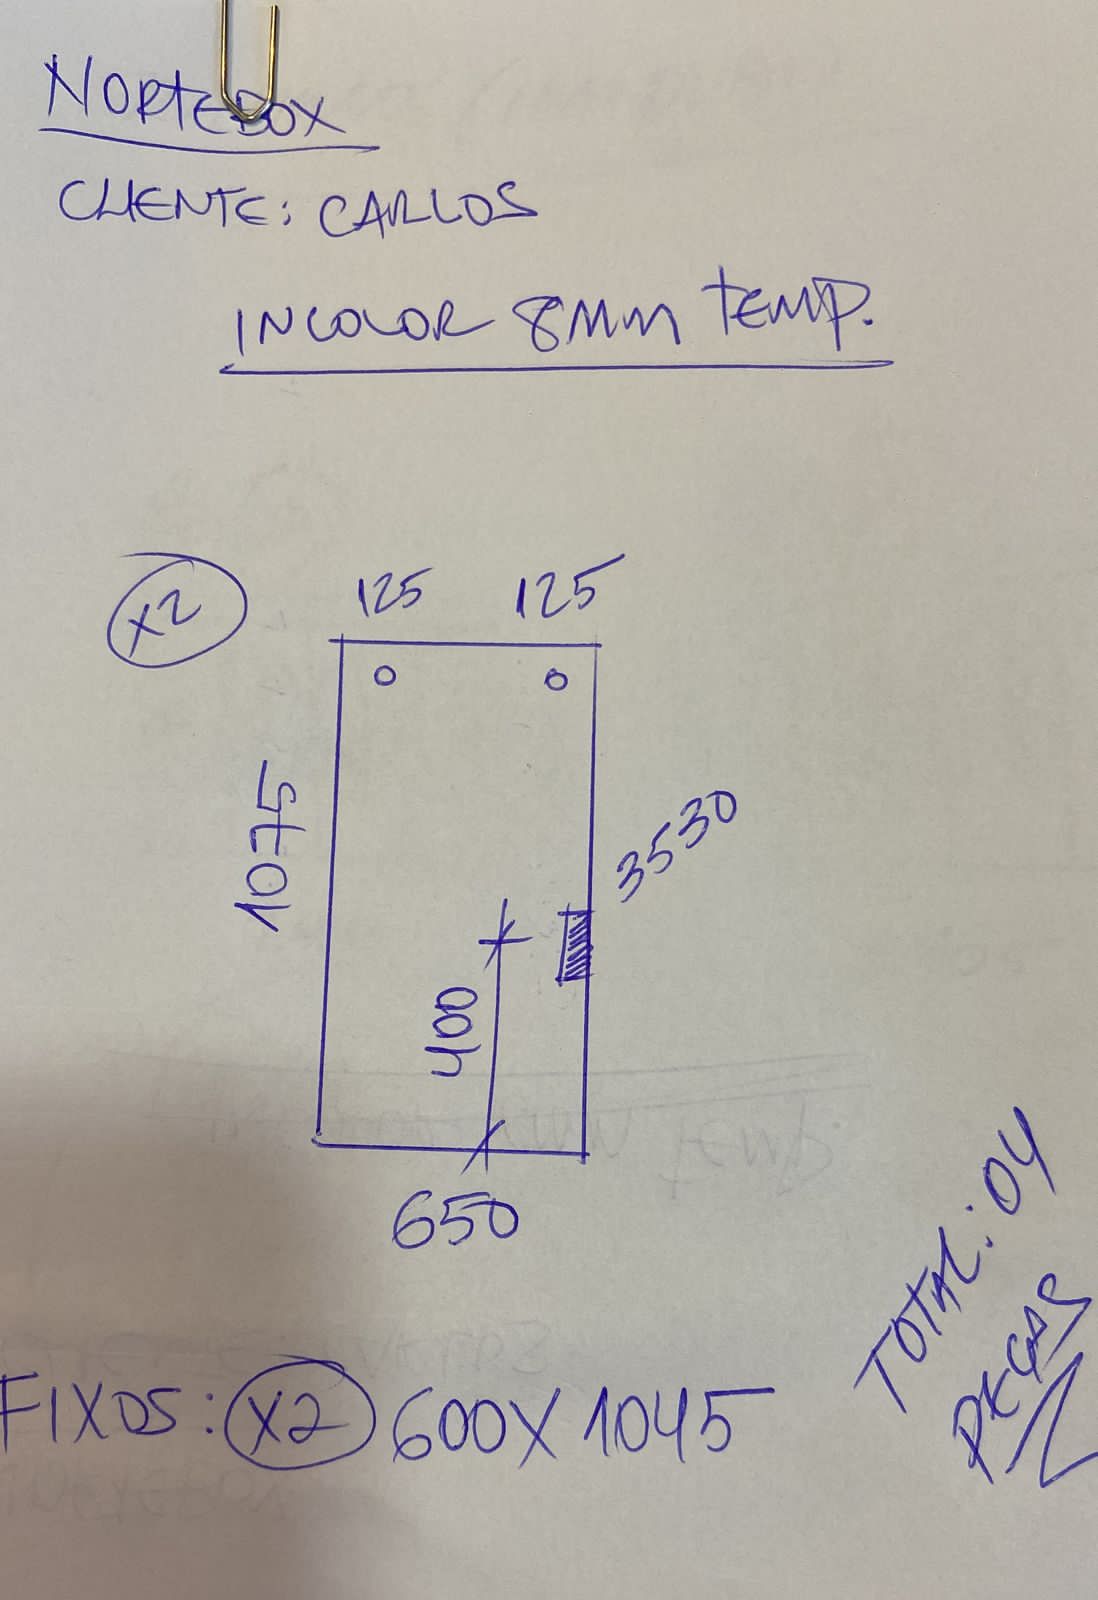 NORTEBOX
CLIENTE: CARLOS
INCOLOR 8MM TEMP.
X2
125 125
1075
3530
400
650
TOTAL: 04
PEÇAS
FIXOS: X2 600X1045